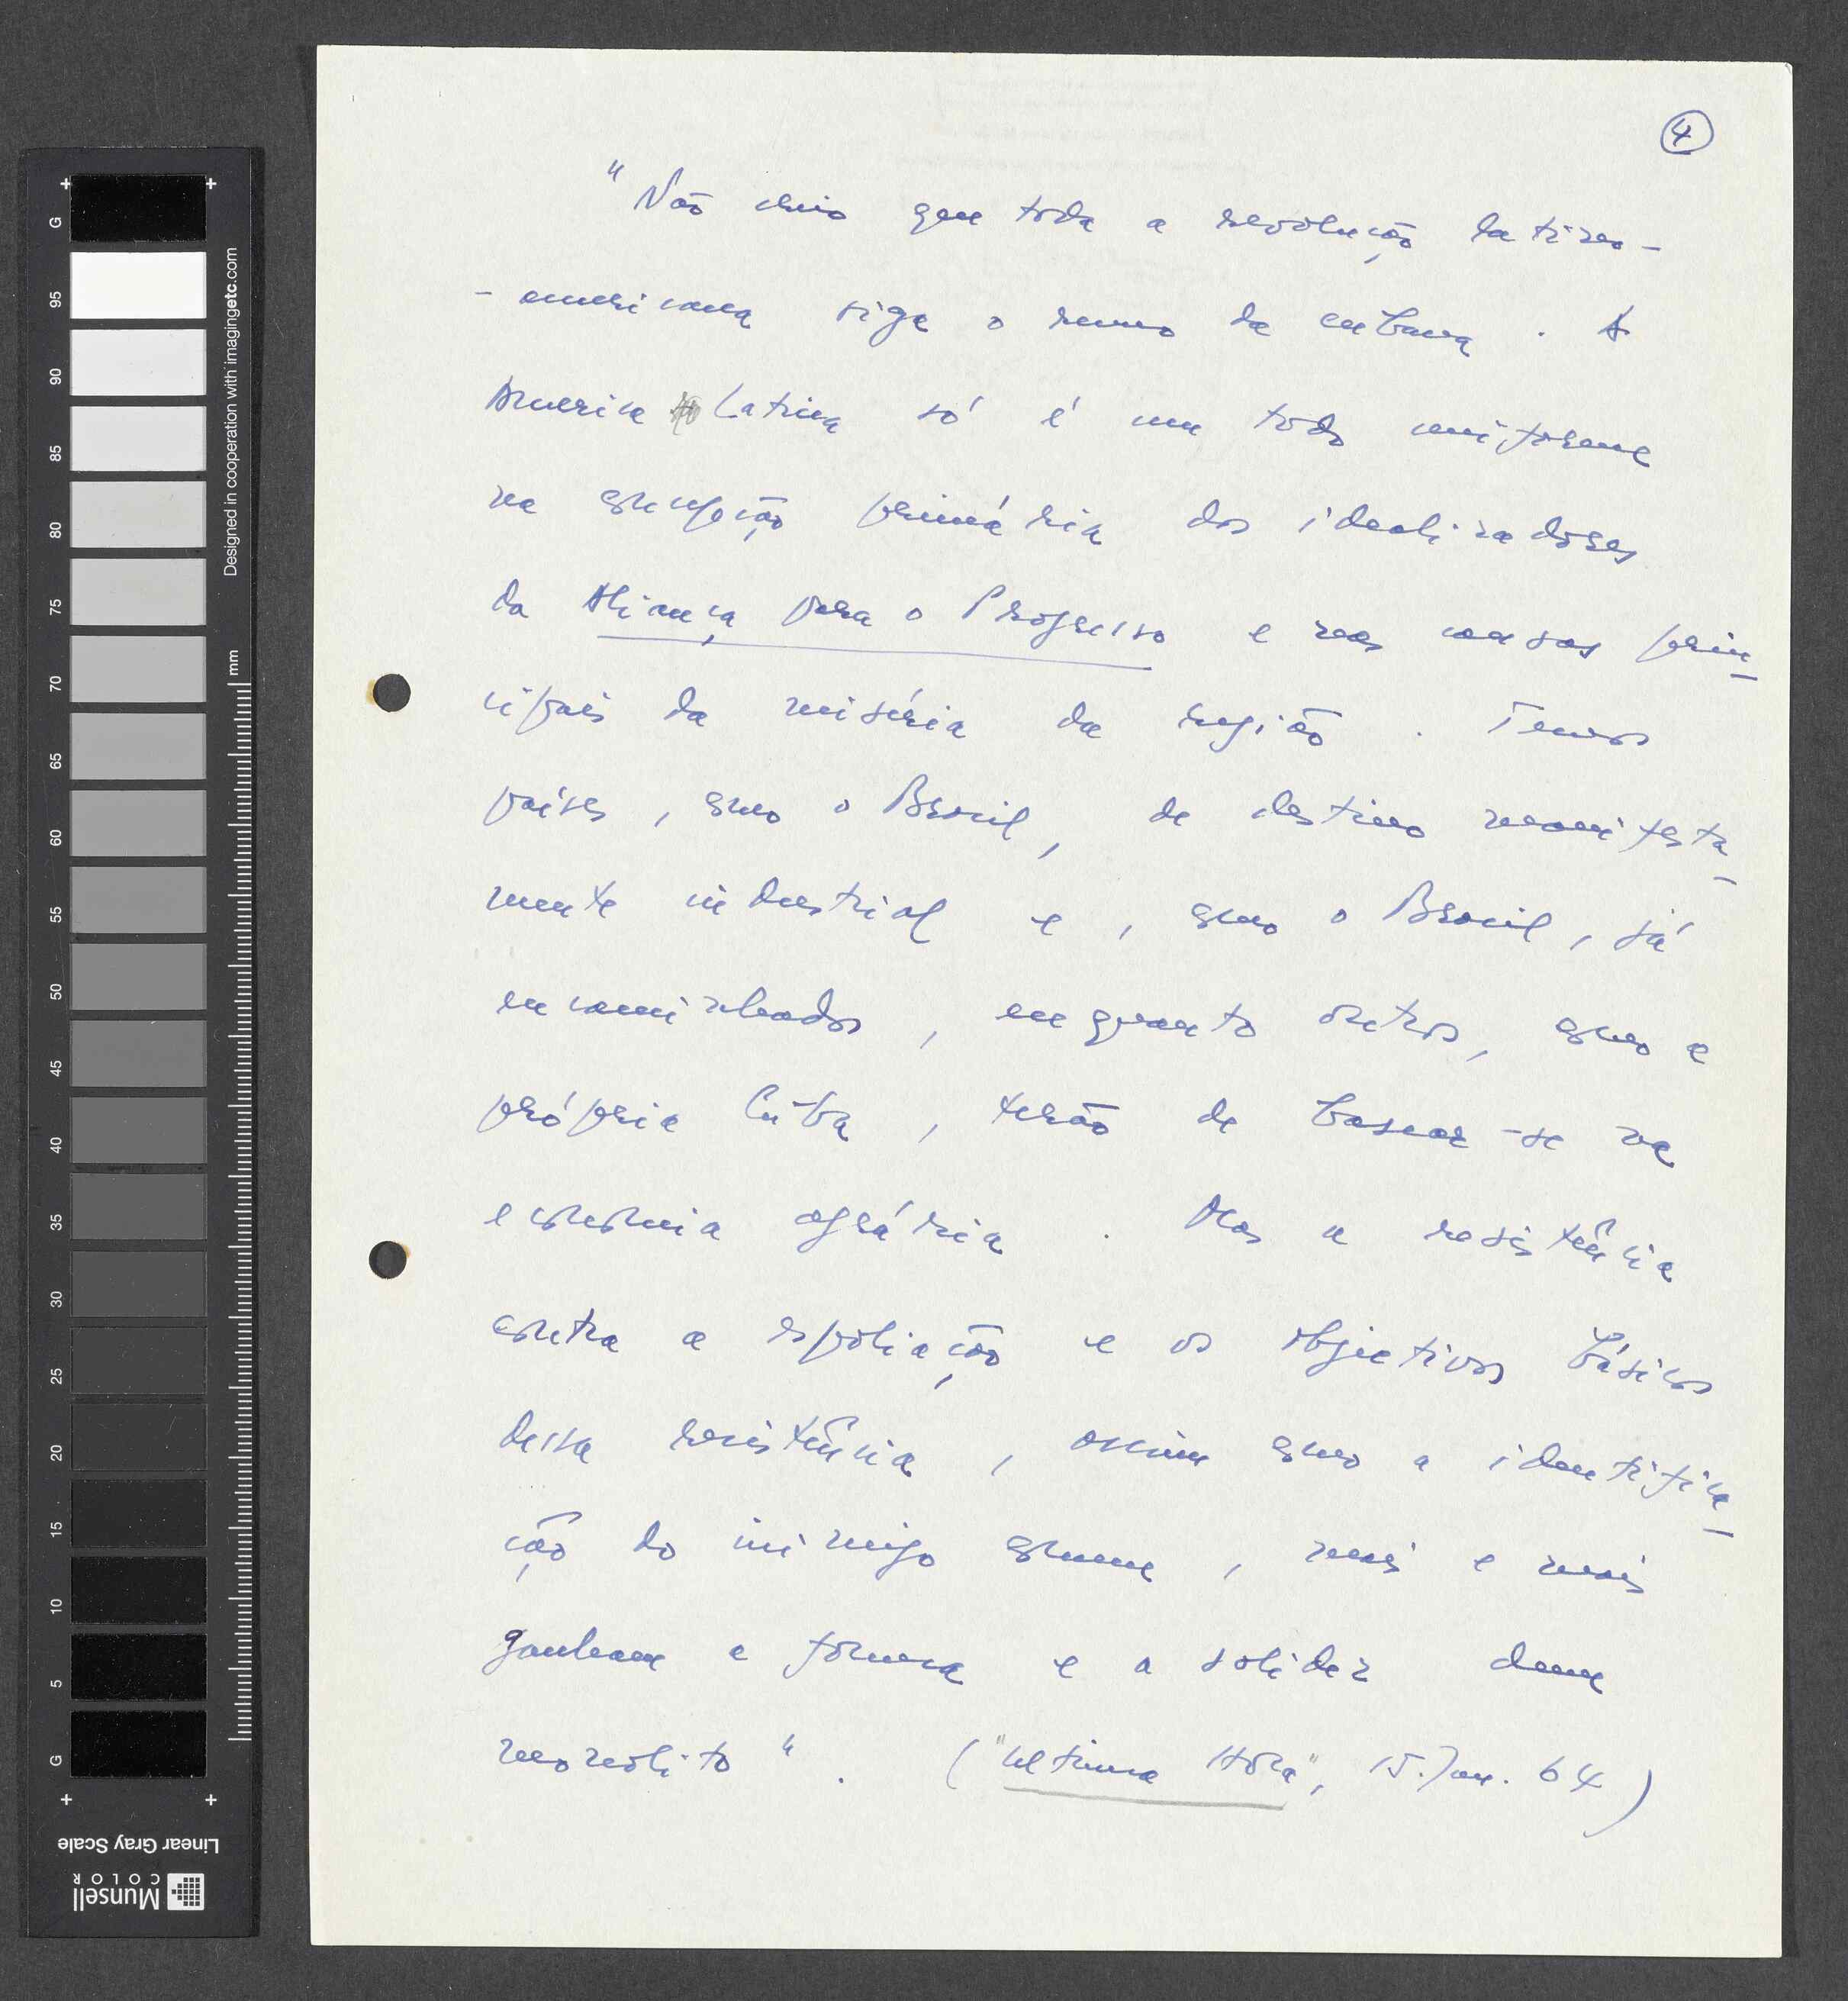 4
"Não creio que toda a revolução latino-
-americana siga o rumo da cubana. A
America Latina só é um todo uniforme
na concepção primária dos idealizadores
da Aliança para o Progresso e nas causas prin-
cipais da miséria da região. Temos
países, como o Brasil, de destino manifesta-
mente industrial e, como o Brasil, já
encaminhados, enquanto outros, como a
própria Cuba, terão de basear-se na
economia agrária. Mas a resistência
contra a espoliação e os objetivos básicos
dessa resistência, assim como a identifica-
ção do inimigo comum, mais e mais
ganham a forma e a solidez dum
monolito". ("Ultima Hora", 15.Jan.64)
G
95
90
85
80
75
70
65
60
55
50
45
40
35
30
25
20
15
10
5
G
mm
Designed in cooperation with imagingetc.com
Linear Gray Scale
Munsell
COLOR